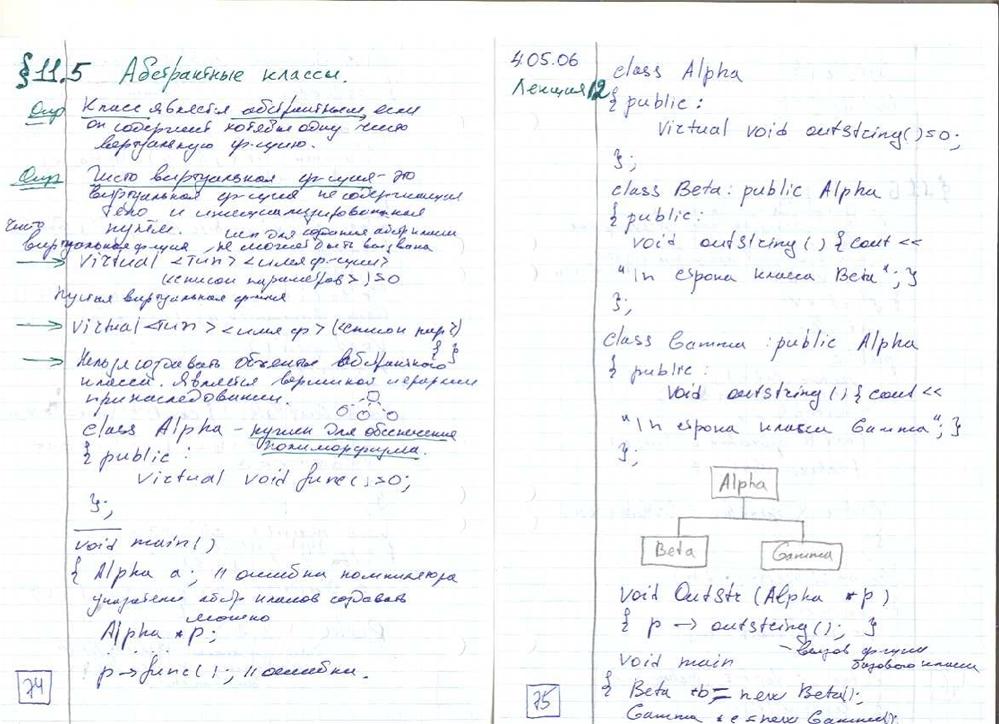 §11.5 Абстрактные классы.
Опр Класс является абстрактным, если
он содержит хотя бы одну чисто
виртуальную ф-цию.
Опр Чисто виртуальная ф-ция - это
виртуальная ф-ция не содержащая
тело и инициализированная
нулём. исп для создания абстр класса
Чисто виртуальная ф-ция, не может быть вызвана
→ virtual <тип> <имя ф-ции>
(<список параметров>)=0
Пустая виртуальная ф-ция
→ virtual <тип> <имя ф> (<список пар>)
{ }
→ Нельзя создавать объекты абстрактного
класса. Является вершиной иерархии
при наследовании.
class Alpha - нужен для обеспечения
полиморфизма.
{ public:
virtual void func()=0;
};
void main()
{ Alpha a; // ошибка компилятора
указатели абстр классов создавать
можно
Alpha *p;
p→func(); // ошибка.
74
4.05.06
Лекция 12
class Alpha
{ public:
virtual void outstring()=0;
};
class Beta: public Alpha
{ public:
void outstring() { cout <<
"In строка класса Beta"; }
};
class Gamma : public Alpha
{ public:
void outstring() { cout <<
"In строка класса Gamma"; }
};
Alpha
Beta Gamma
void Outstr (Alpha *p)
{ p → outstring(); }
- вызов ф-ции
базового класса
void main
{ Beta *b = new Beta();
Gamma *c = new Gamma();
75